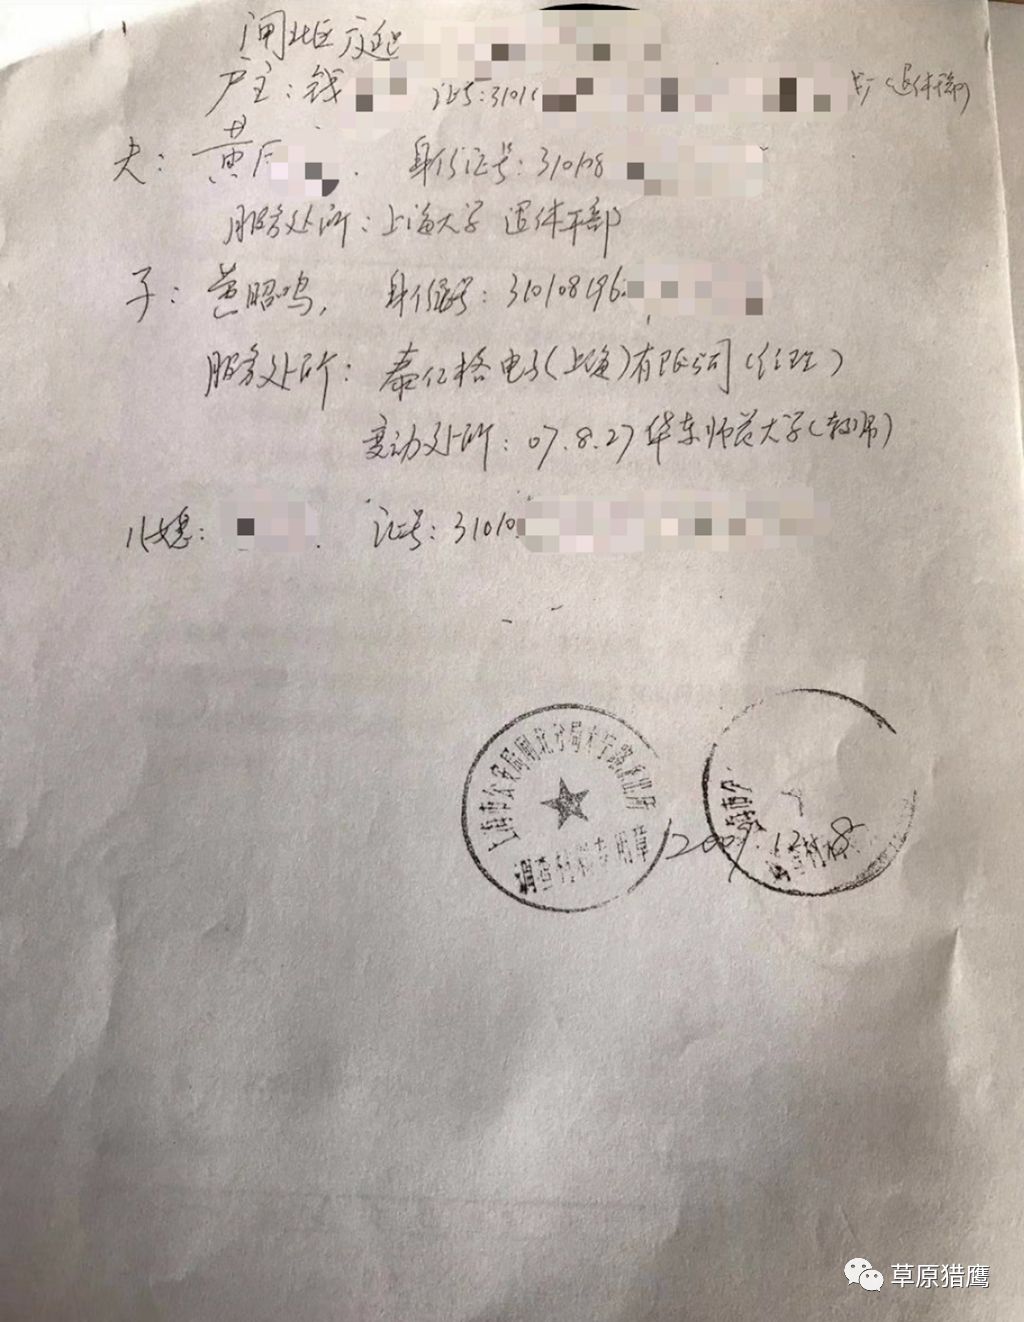 闸北区广延
户主：钱 证号:3101 (退休
夫： 黄 身份证号：310108
服务处所：上海大学 退休干部
子：黄昭鸣， 身份证号：310108196
服务处所： 泰亿格电子(上海)有限公司(经理)
变动处所：07.8.27华东师范大学(教师)
儿媳： 证号：31010
上海市公安局闸北分局 路派出所
调查材料专用章
12009.12.8
草原猎鹰